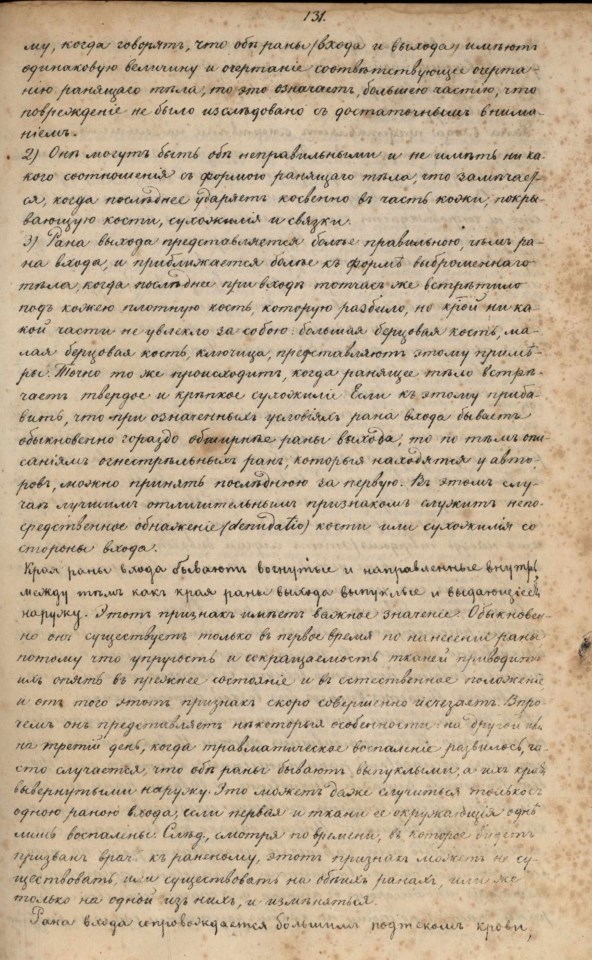 131.
му, когда говорятъ, что обѣ раны (входа и выхода) имѣютъ
одинаковую величину и очертаніе соотвѣтствующее очерта-
нію ранящаго тѣла, то это означаетъ, большею частію, что
поврежденіе не было изслѣдовано съ достаточнымъ внима-
ніемъ.
2) Онѣ могутъ быть обѣ неправильными и не имѣть ника-
кого соотношенія съ формою ранящаго тѣла, что замѣчает-
ся, когда послѣднее ударяетъ косвенно въ часть кожи, покры-
вающую кости, сухожилія и связки.
3) Рана выхода представляется болѣе правильною, чѣмъ ра-
на входа, и приближается болѣе къ формѣ выброшеннаго
тѣла, когда послѣднее при входѣ тотчасъ же встрѣтило
подъ кожею плотную кость, которую разбило, но крой ни ка-
кой части не увлекло за собою: большая берцовая кость, ма-
лая берцовая кость, ключица, представляютъ этому примѣ-
ры. Точно то же происходитъ, когда ранящее тѣло встрѣ-
чаетъ твердое и крѣпкое сухожиліе. Если къ этому приба-
вить, что при означенныхъ условіяхъ рана входа бываетъ
обыкновенно гораздо обширнѣе раны выхода, то по тѣмъ опи-
саніямъ огнестрѣльныхъ ранъ, которыя находятся у авто-
ровъ, можно принять послѣднюю за первую. Въ этомъ слу-
чаѣ лучшимъ отличительнымъ признакомъ служитъ непо-
средственное обнаженіе (denudatio) кости или сухожилія со
стороны входа.
Края раны входа бываютъ вогнутые и направленные внутрь,
между тѣмъ какъ края раны выхода выпуклые и выдающіеся
наружу. Этотъ признакъ имѣетъ важное значеніе. Обыкновен-
но онъ существуетъ только въ первое время по нанесеніи раны
потому что упругость и сокращаемость тканей приводитъ
ихъ опять въ прежнее состояніе и въ естественное положеніе
и отъ того этотъ признакъ скоро совершенно исчезаетъ. Впро-
чемъ онъ представляетъ нѣкоторыя особенности: на другой или
на третій день, когда травматическое воспаленіе развилось, ча-
сто случается, что обѣ раны бываютъ выпуклыми, а ихъ края
вывернутыми наружу. Это можетъ даже случиться только съ
одною раною входа, если первая и ткани ее окружающія однѣ
лишь воспалены. Слѣд., смотря по времени, въ которое будетъ
призванъ врачъ къ раненому, этотъ признакъ можетъ не су-
ществовать, или существовать на обѣихъ ранахъ, или же
только на одной изъ нихъ, и измѣняться.
Рана входа сопровождается бо́льшимъ подтекомъ крови,